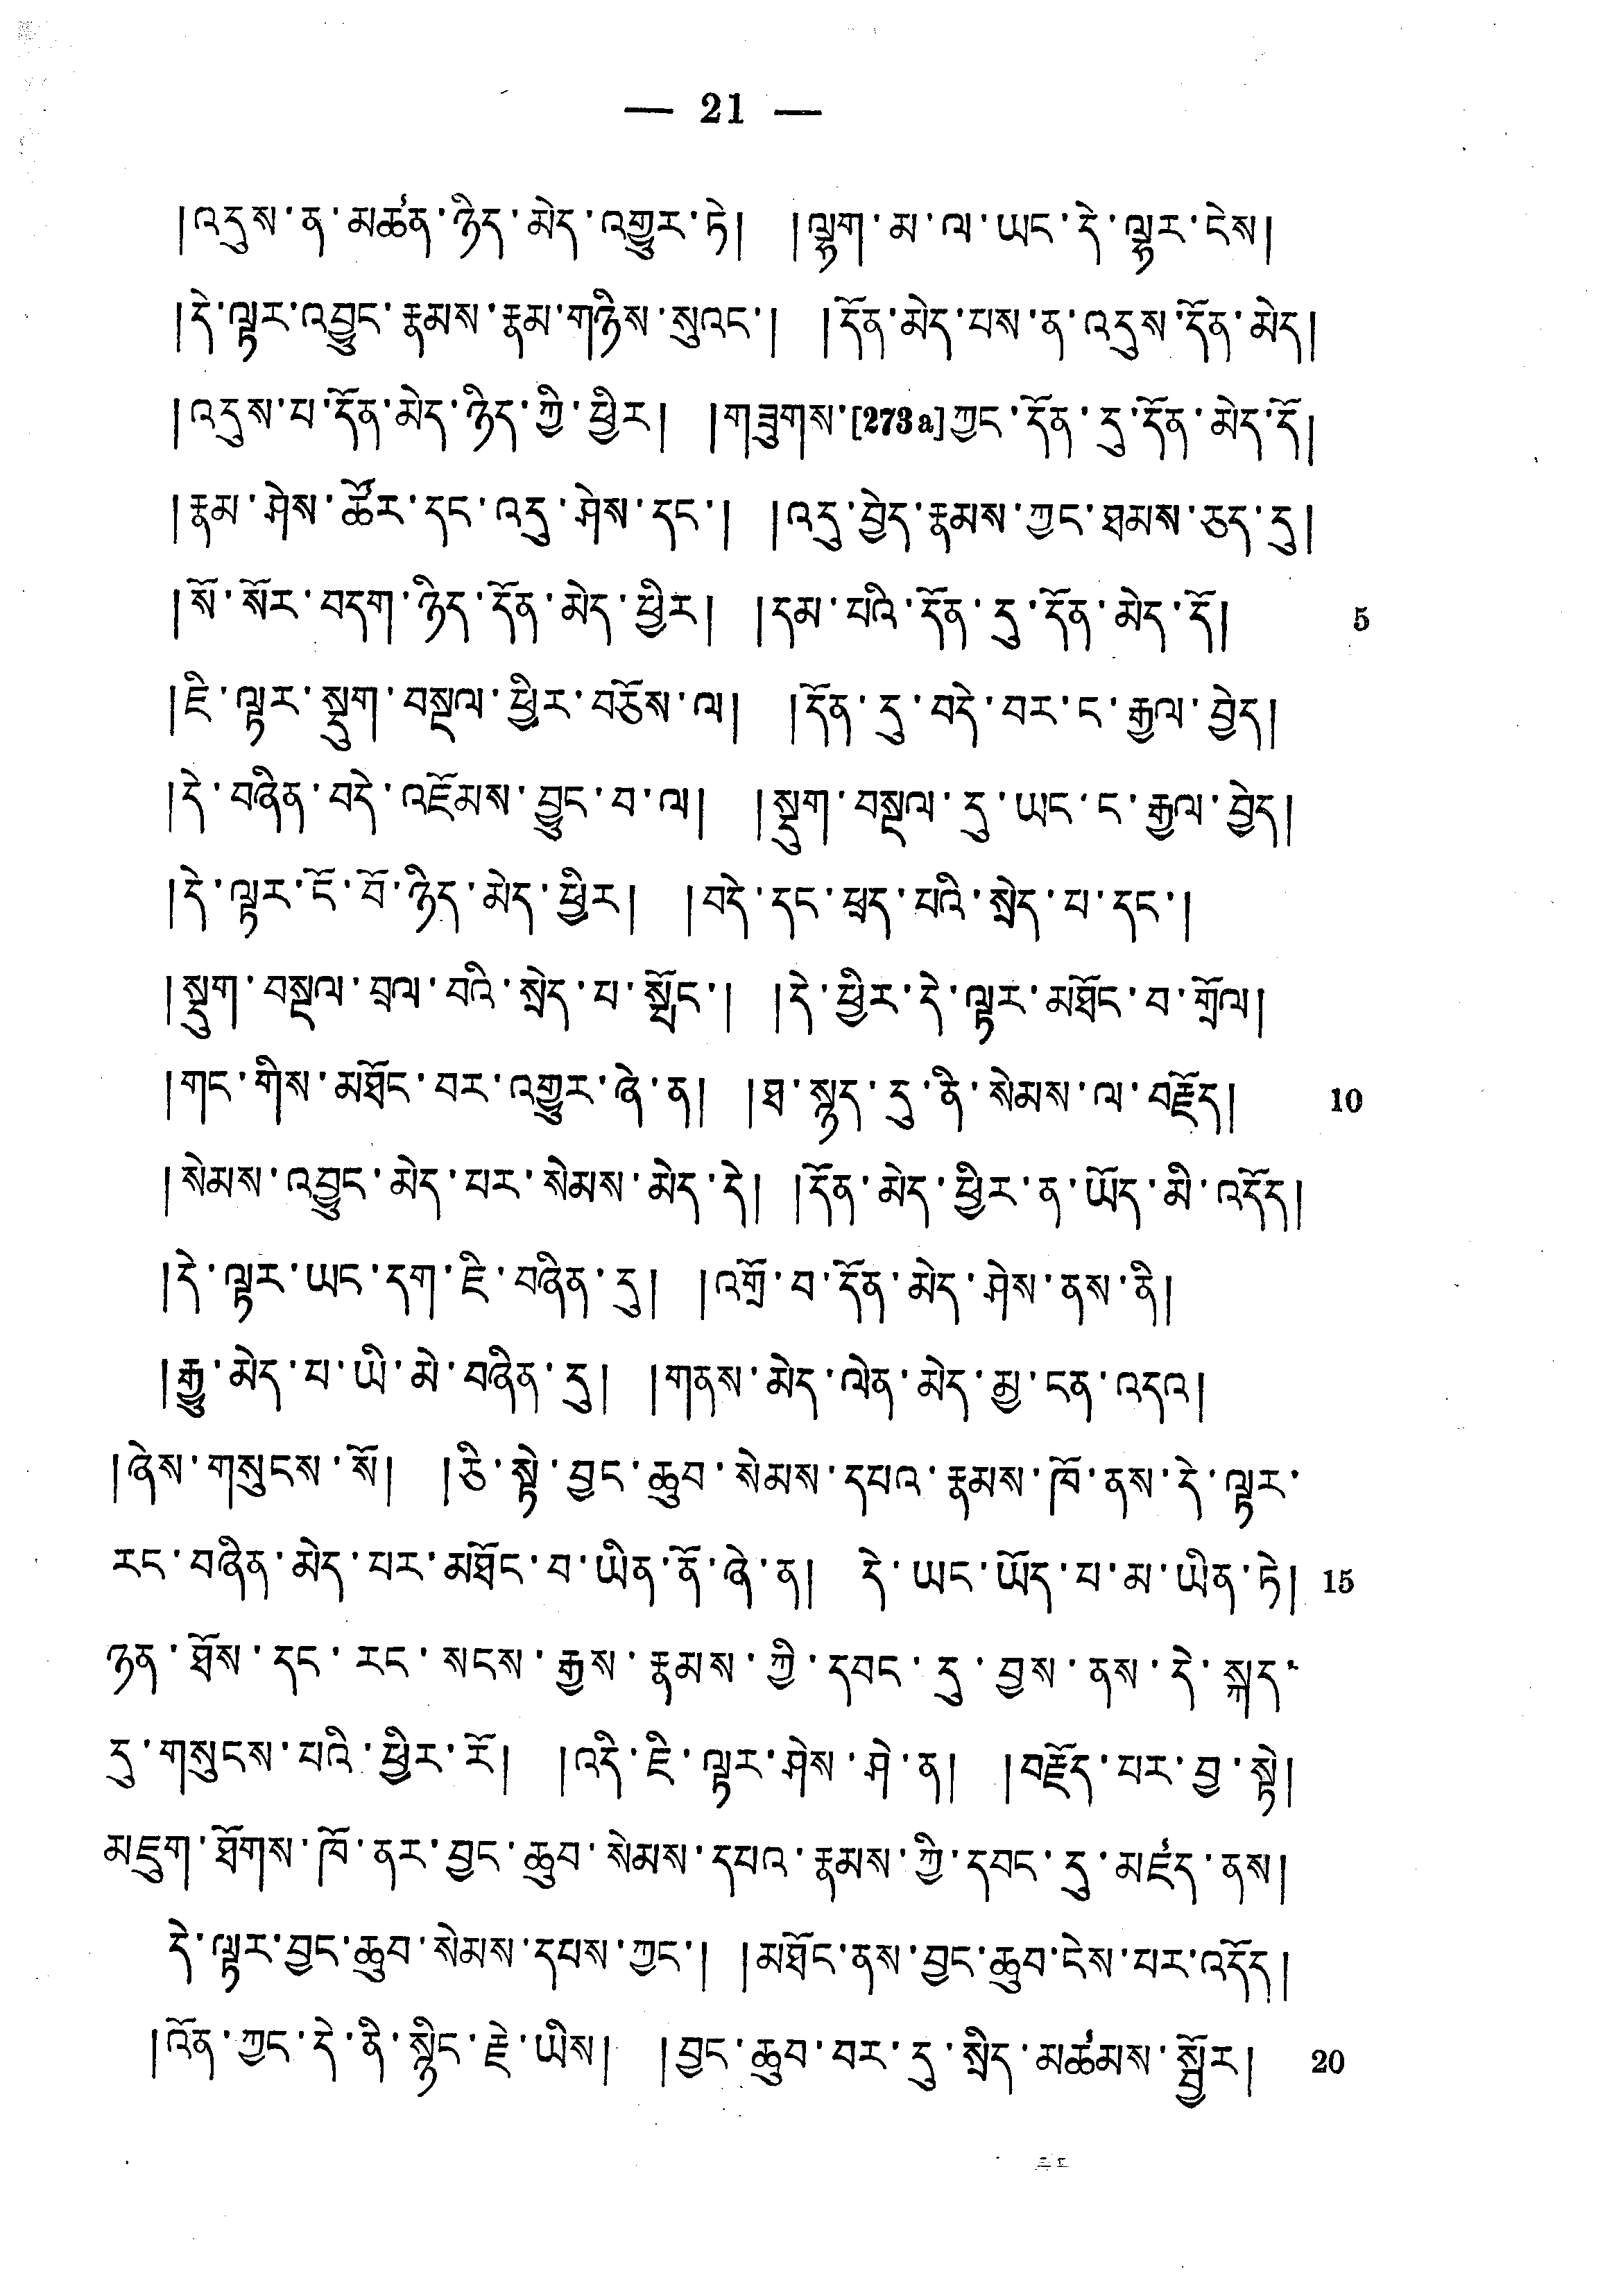 — 21 —
།འདུས་ན་མཚན་ཉིད་མེད་འགྱུར་ཏེ། །ལྷག་མ་ལ་ཡང་དེ་ལྟར་ངེས།
།དེ་ལྟར་འབྱུང་རྣམས་རྣམ་གཉིས་སུའང་། །དོན་མེད་པས་ན་འདུས་དོན་མེད།
།འདུས་པ་དོན་མེད་ཉིད་ཀྱི་ཕྱིར། །གཟུགས་[273a]ཀྱང་དོན་དུ་དོན་མེད་དོ།
།རྣམ་ཤེས་ཚོར་དང་འདུ་ཤེས་དང་། །འདུ་བྱེད་རྣམས་ཀྱང་ཐམས་ཅད་དུ།
།སོ་སོར་བདག་ཉིད་དོན་མེད་ཕྱིར། །དམ་པའི་དོན་དུ་དོན་མེད་དོ། 5
།ཇི་ལྟར་སྡུག་བསྔལ་ཕྱིར་བཅོས་ལ། །དོན་དུ་བདེ་བར་ང་རྒྱལ་བྱེད།
།དེ་བཞིན་བདེ་འཇོམས་བྱུང་བ་ལ། །སྡུག་བསྔལ་དུ་ཡང་ང་རྒྱལ་བྱེད།
།དེ་ལྟར་ངོ་བོ་ཉིད་མེད་ཕྱིར། །བདེ་དང་ཕྲད་པའི་སྲེད་པ་དང་།
།སྡུག་བསྔལ་བྲལ་བའི་སྲེད་པ་སྤོང་། །དེ་ཕྱིར་དེ་ལྟར་མཐོང་བ་གྲོལ།
།གང་གིས་མཐོང་བར་འགྱུར་ཞེ་ན། །ཐ་སྙད་དུ་ནི་སེམས་ལ་བརྗོད། 10
།སེམས་འབྱུང་མེད་པར་སེམས་མེད་དེ། །དོན་མེད་ཕྱིར་ན་ཡོད་མི་འདོད།
།དེ་ལྟར་ཡང་དག་ཇི་བཞིན་དུ། །འགྲོ་བ་དོན་མེད་ཤེས་ནས་ནི།
།རྒྱུ་མེད་པ་ཡི་མེ་བཞིན་དུ། །གནས་མེད་ལེན་མེད་མྱ་ངན་འདའ།
།ཞེས་གསུངས་སོ། །ཅི་སྟེ་བྱང་ཆུབ་སེམས་དཔའ་རྣམས་ཁོ་ནས་དེ་ལྟར་
རང་བཞིན་མེད་པར་མཐོང་བ་ཡིན་ནོ་ཞེ་ན། དེ་ཡང་ཡོད་པ་མ་ཡིན་ཏེ། 15
ཉན་ཐོས་དང་རང་སངས་རྒྱས་རྣམས་ཀྱི་དབང་དུ་བྱས་ནས་དེ་སྐད་
དུ་གསུངས་པའི་ཕྱིར་རོ། །འདི་ཇི་ལྟར་ཤེས་ཤེ་ན། །བརྗོད་པར་བྱ་སྟེ།
མཇུག་ཐོགས་ཁོ་ནར་བྱང་ཆུབ་སེམས་དཔའ་རྣམས་ཀྱི་དབང་དུ་མཛད་ནས།
དེ་ལྟར་བྱང་ཆུབ་སེམས་དཔས་ཀྱང་། །མཐོང་ནས་བྱང་ཆུབ་ངེས་པར་འདོད།
།འོན་ཀྱང་དེ་ནི་སྙིང་རྗེ་ཡིས། །བྱང་ཆུབ་བར་དུ་སྲིད་མཚམས་སྦྱོར། 20